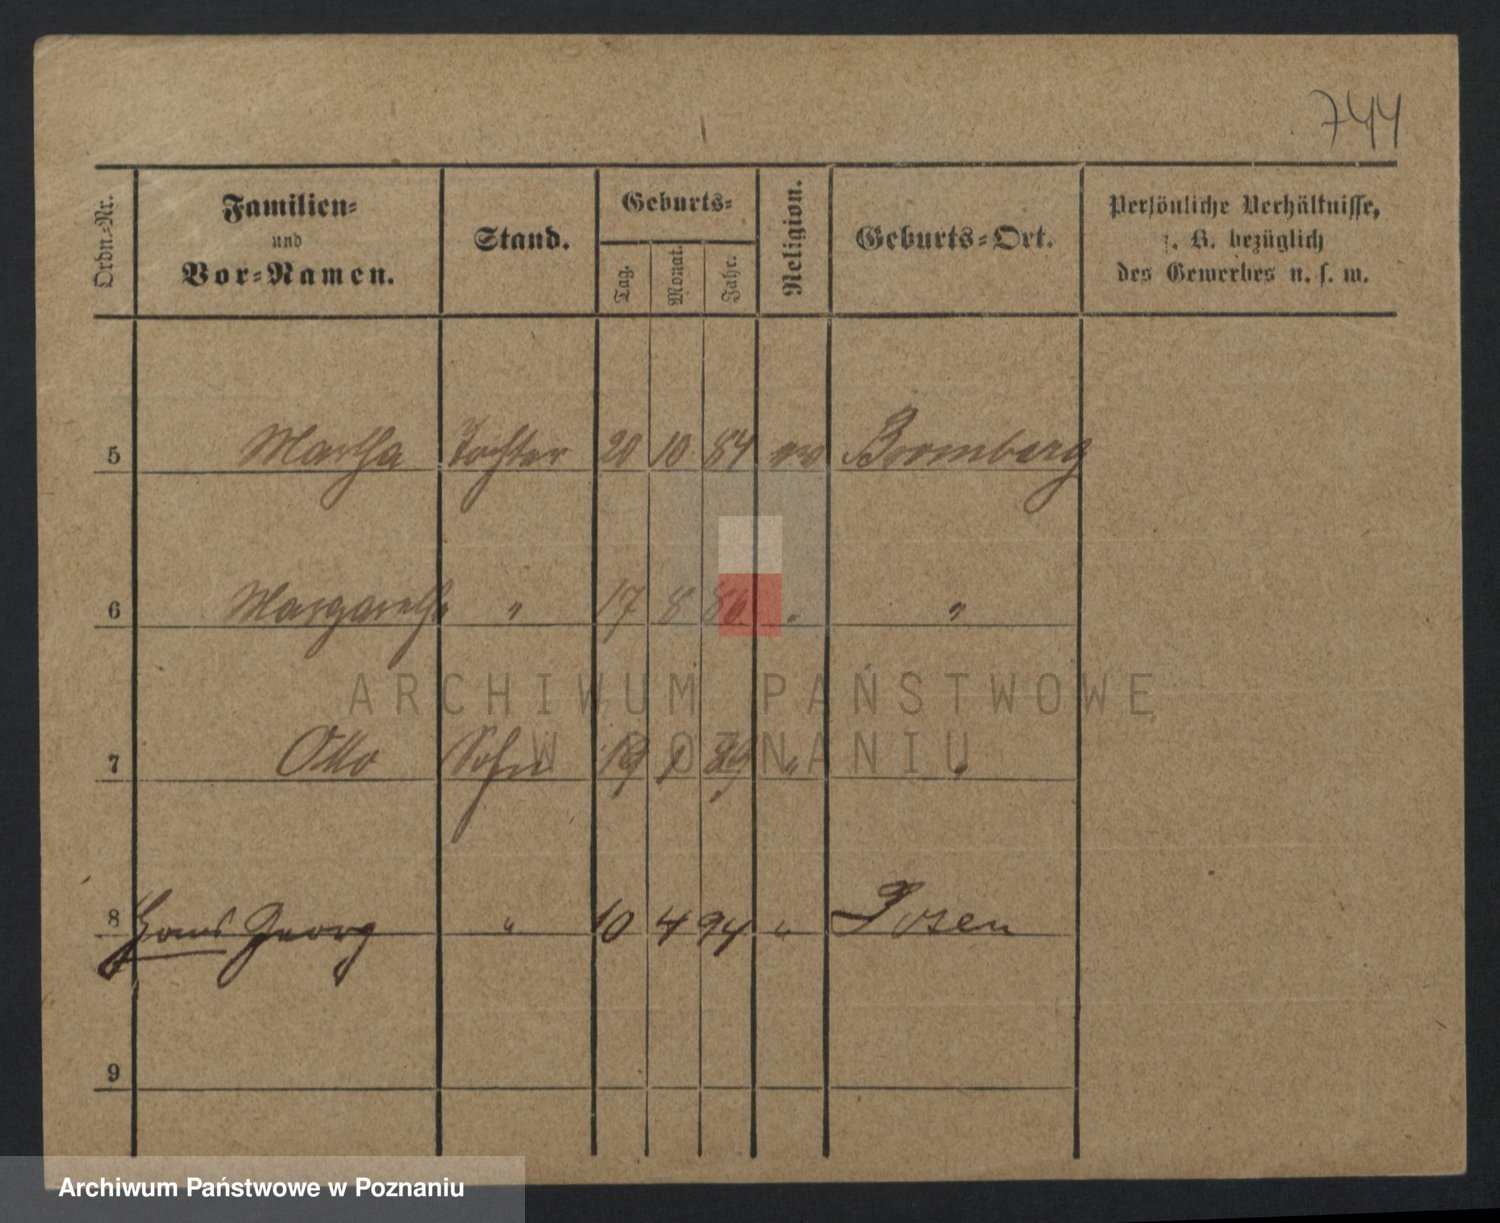 744
Ordn.-Nr.
Familien-
und
Vor-Namen.
Stand.
Geburts-
Tag.
Monat.
Jahr.
Religion.
Geburts-Ort.
Persönliche Verhältnisse,
z. B. bezüglich
des Gewerbes u. s. w.
5 Martha Tochter 20 10 84 ev Bromberg
6 Margarethe " 17 8 86 " "
ARCHIWUM PAŃSTWOWE
W POZNANIU
7 Otto Sohn 19 1 89 " "
8 Hans Georg " 10 4 94 " Posen
9
Archiwum Państwowe w Poznaniu